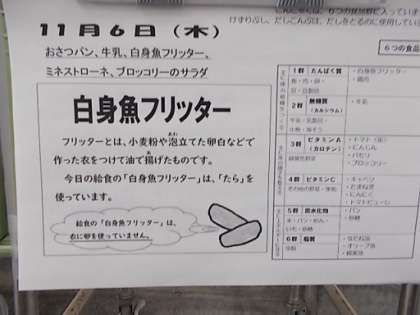 11月6日（木）
おさつパン、牛乳、白身魚フリッター、
ミネストローネ、ブロッコリーのサラダ
白身魚フリッター
フリッターとは、小麦粉や泡立てた卵白などで
作った衣をつけて油で揚げたものです。
今日の給食の「白身魚フリッター」は、「たら」を
使っています。
給食の「白身魚フリッター」は、
衣に卵を使っていません。
けずりぶし、だしこんぶは、だしをとるのに使用してい
６つの食品
1群 たんぱく質
・白身フリッター
・鶏肉
2群 無機質
（カルシウム）
・牛乳
3群 ビタミンA
（カロテン）
・トマト（缶）
・にんじん
・パセリ
・ブロッコリー
4群 ビタミンC
・キャベツ
・たまねぎ
・にんにく
・トマトピューレ
5群 炭水化物
・パン
・砂糖
6群 脂質
・なたね油
・オリーブ油